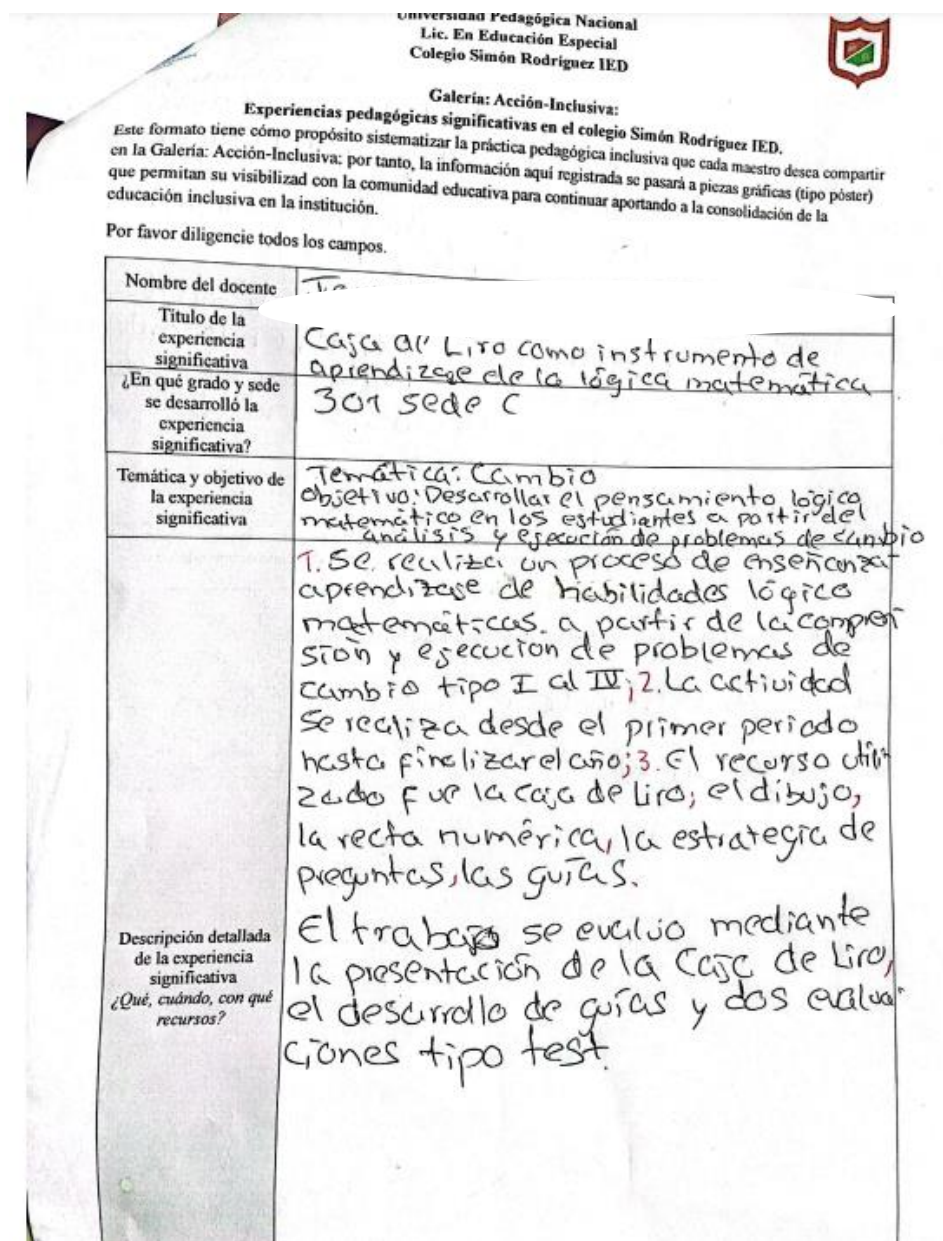 Universidad Pedagógica Nacional
Lic. En Educación Especial
Colegio Simón Rodríguez IED
Galería: Acción-Inclusiva:
Experiencias pedagógicas significativas en el colegio Simón Rodríguez IED.
Este formato tiene cómo propósito sistematizar la práctica pedagógica inclusiva que cada maestro desea compartir
en la Galería: Acción-Inclusiva; por tanto, la información aquí registrada se pasará a piezas gráficas (tipo póster)
que permitan su visibilizad con la comunidad educativa para continuar aportando a la consolidación de la
educación inclusiva en la institución.
Por favor diligencie todos los campos.
Nombre del docente
Título de la
experiencia
significativa
Caja de Liro como instrumento de
aprendizaje de la lógica matemática
¿En qué grado y sede
se desarrolló la
experiencia
significativa?
301 sede C
Temática y objetivo de
la experiencia
significativa
Temática: Cambio
Objetivo: Desarrollar el pensamiento lógico
matemático en los estudiantes a partir del
análisis y ejecución de problemas de cambio
Descripción detallada
de la experiencia
significativa
¿Qué, cuándo, con qué
recursos?
1. Se realiza un proceso de enseñanza
aprendizaje de habilidades lógico
matemáticas. a partir de la compren
sión y ejecución de problemas de
cambio tipo I al IV; 2. La actividad
se realiza desde el primer periodo
hasta finalizar el año; 3. El recurso utili
zado fue la caja de Liro, el dibujo,
la recta numérica, la estrategia de
preguntas, las guías.
El trabajo se evaluo mediante
la presentación de la Caja de Liro,
el desarrollo de guías y dos evalua
ciones tipo test.